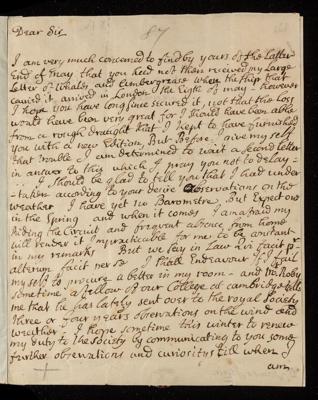 87
Dear Sir
I am very much concerned to find by yours of the Latter
End of may that you had not then received my Large
Letter of Whales and Ambergrease when the ship that
carried it, arrived in London the Eigth of may: however
I hope you have long since secured it, not that the Loss
would have been very great for I should have been able
from a rough draught that I kept to have furnished
you with a new Edition, But Before I give my self
that trouble I am determined to wait a second Letter
in answer to this which I pray you not to delay:
I should be glad to tell you that I had under
taken according to your desire observations on the
weather I have yet no Barometre, But Expect one
in the Spring and when it comes I am afraid my
Riding the Circuit and frequent absence from home
will render it Impracticable for me to be constant
in my remarks But we say in Law qui facit pr
alterum facit per se I shall Endeavour If I fail
my self to procure a better in my room - and mr Roby
sometime a fellow of our College at cambridge tells
me that he has lately sent over to the royal Society
Three or four years observations on the wind and
weather. I hope sometime this winter to renew
my duty to the Society by communicating to you some
further observations and curiositys till when I
am